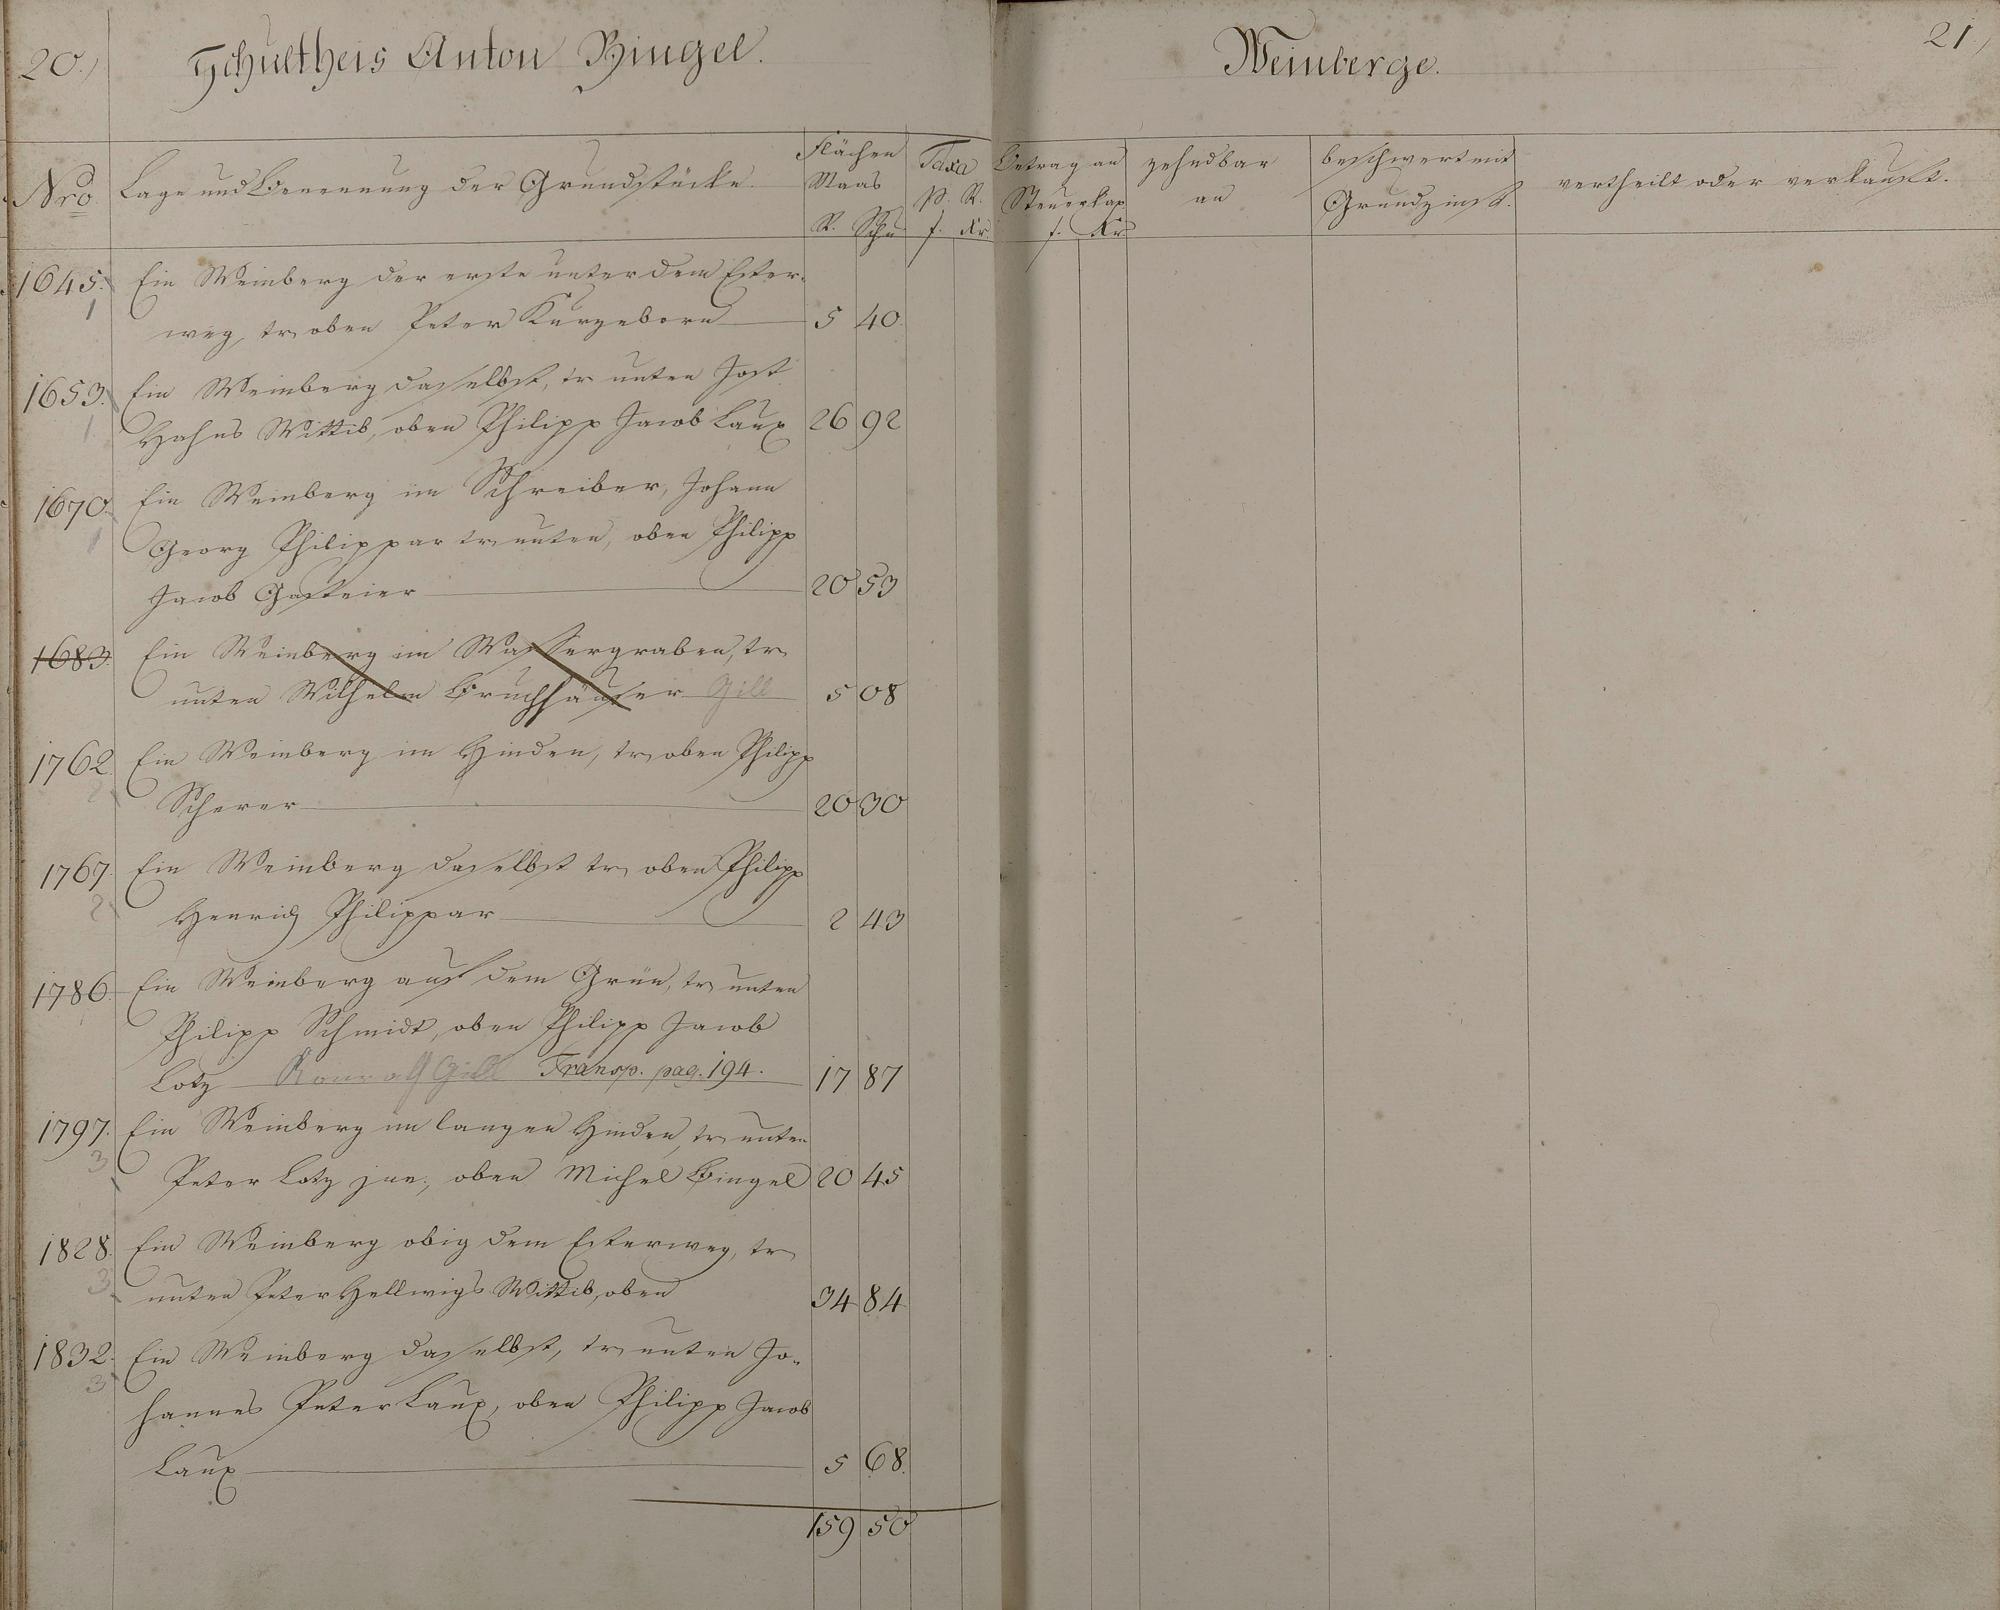 20.)
Schultheis Anton Bingel.
Weinberge.
21.)
Nro
Lage und Benennung der Grundstücke.
Flächen
Maas
R. Schu
Taxa
p. R.
f. Kr.
Betrag an
Steuerkap
f. Kr.
zehndbar
an
beschwert mit
Grundzinst.
vertheilt oder verkauft.
1645. Ein Weinberg der erste unter dem Ester-
1 weg, tr. oben Peter Kurzeborn 5 40.
1653. Ein Weinberg daselbst, tr. unten Jost
1 Hahns Wittib, oben Philipp Jacob Laux 26 92
1670. Ein Weinberg im Schreiber, Johann
1 Georg Philippar tr. unten, oben Philipp
Jacob Gasteier 20 53
1683. Ein Weinberg im Wassergraben, tr.
unten Wilhelm Bruchhäuser Gill 5 08
1762. Ein Weinberg im Hinden, tr. oben Philipp
2 Scherer 20 30
1767. Ein Weinberg daselbst tr. oben Philipp
2 Henrich Philippar 2 43
1786. Ein Weinberg auf dem Grün, tr. unten
Philipp Schmidt, oben Philipp Jacob
Lotz Gill Transp. pag. 194. 17 87
1797. Ein Weinberg im langen Hinden, tr. unten
3 Peter Lotz jun., oben Michel Bingel 20 45
1828. Ein Weinberg obig dem Esterweg, tr.
3 unten Peter Hellwigs Wittib, oben 34 84
1832. Ein Weinberg daselbst, tr. unten Jo-
3 hannes Peter Laux, oben Philipp Jacob
Laux 5 68.
159 50